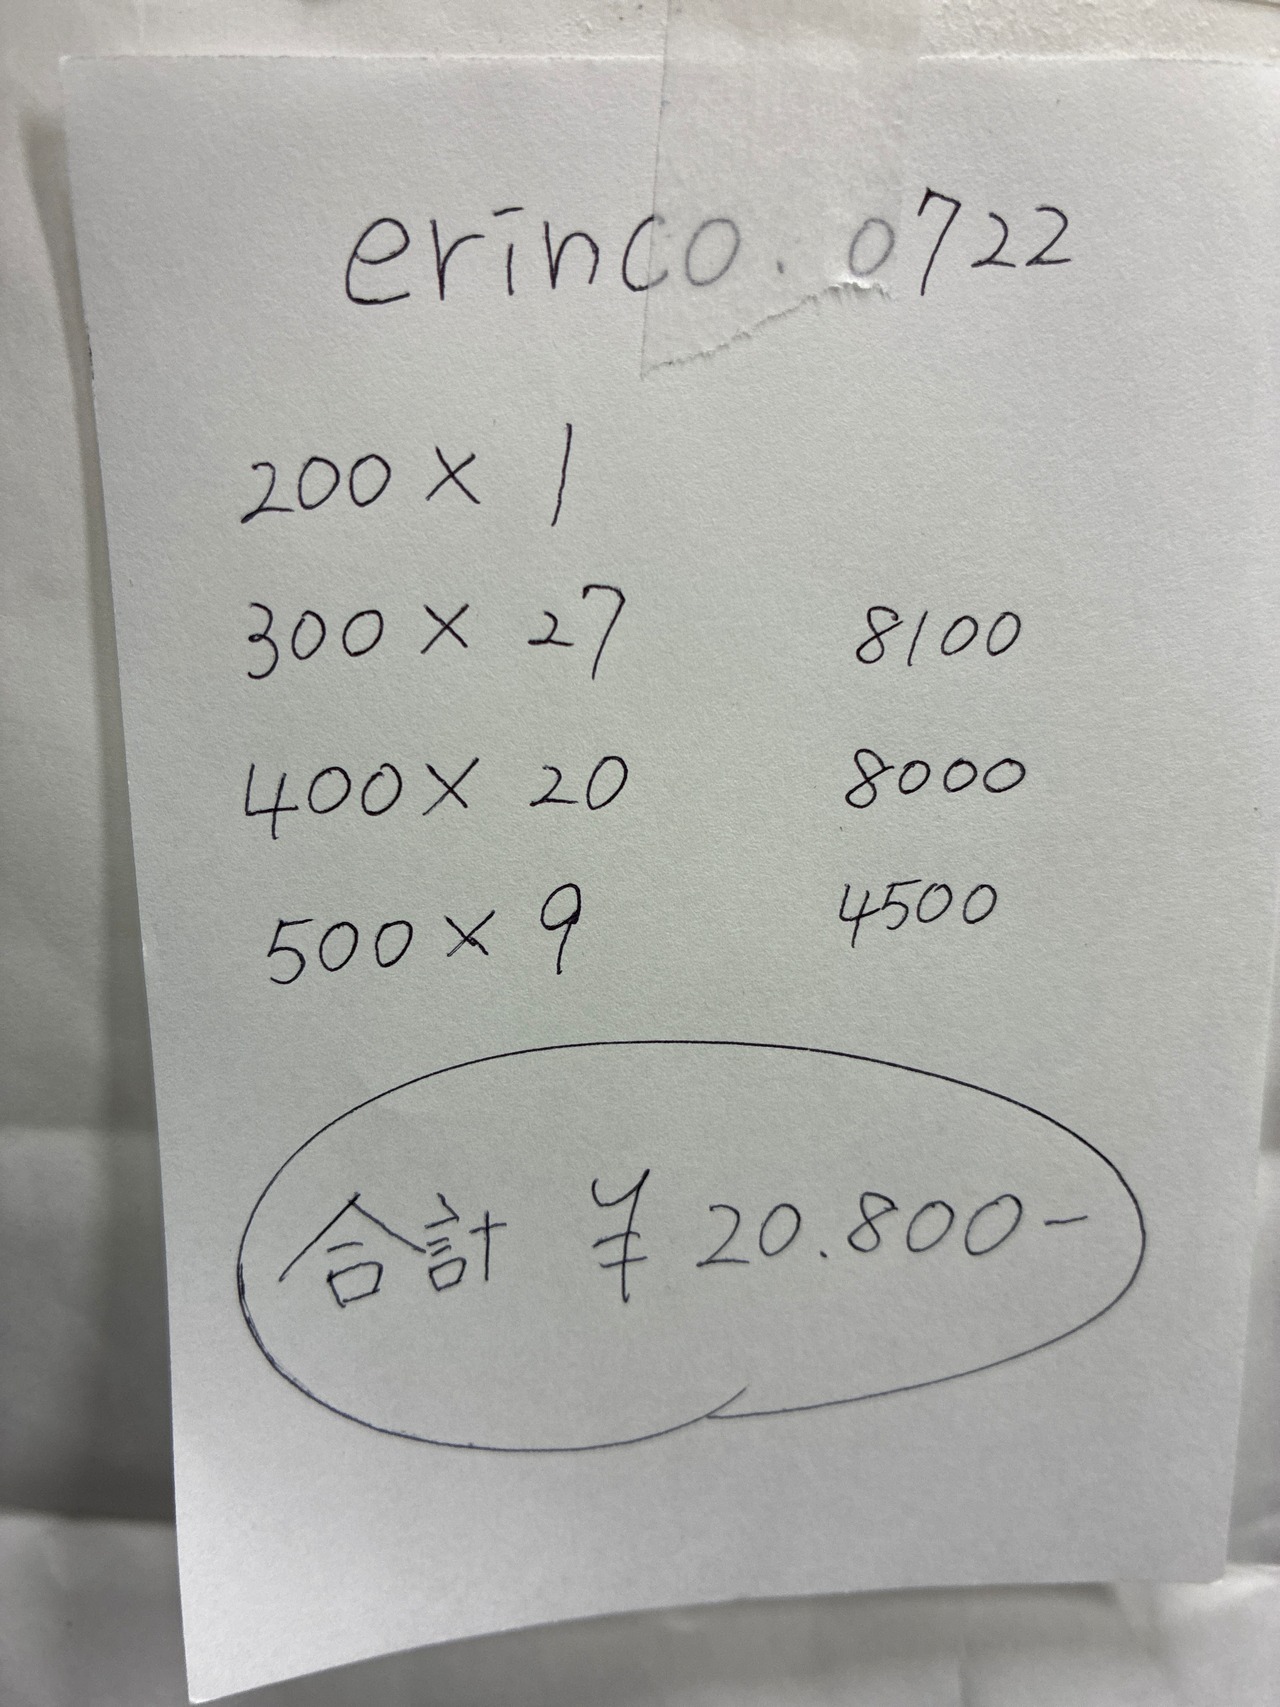 erinco.0722
200 × 1
300 × 27 8100
400 × 20 8000
500 × 9 4500
合計 ¥20.800-